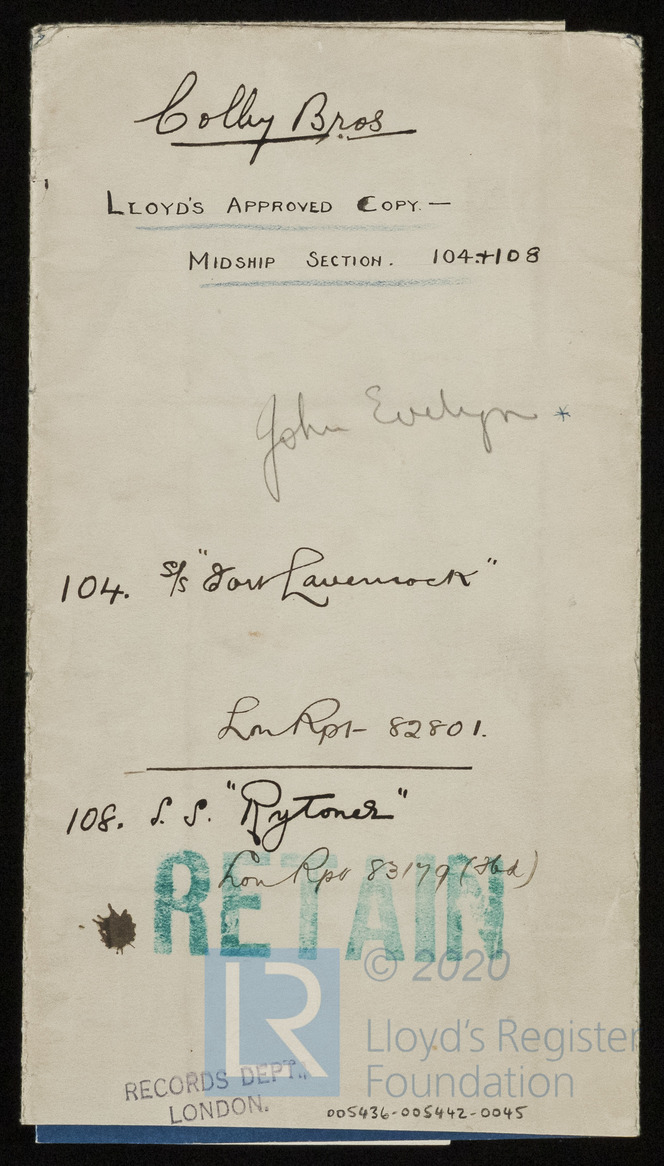 Colby Bros
LLOYD'S APPROVED COPY. —
MIDSHIP SECTION. 104.+108
John Evelyn *
104. s/s "Fort Lavernock"
Lon Rpt- 82801.
108. S. S. "Rytoner"
Lon Rpt 83179 (Hbd)
RETAIN
© 2020
LR Lloyd's Register
Foundation
RECORDS DEPT.,
LONDON.
005436-005442-0045